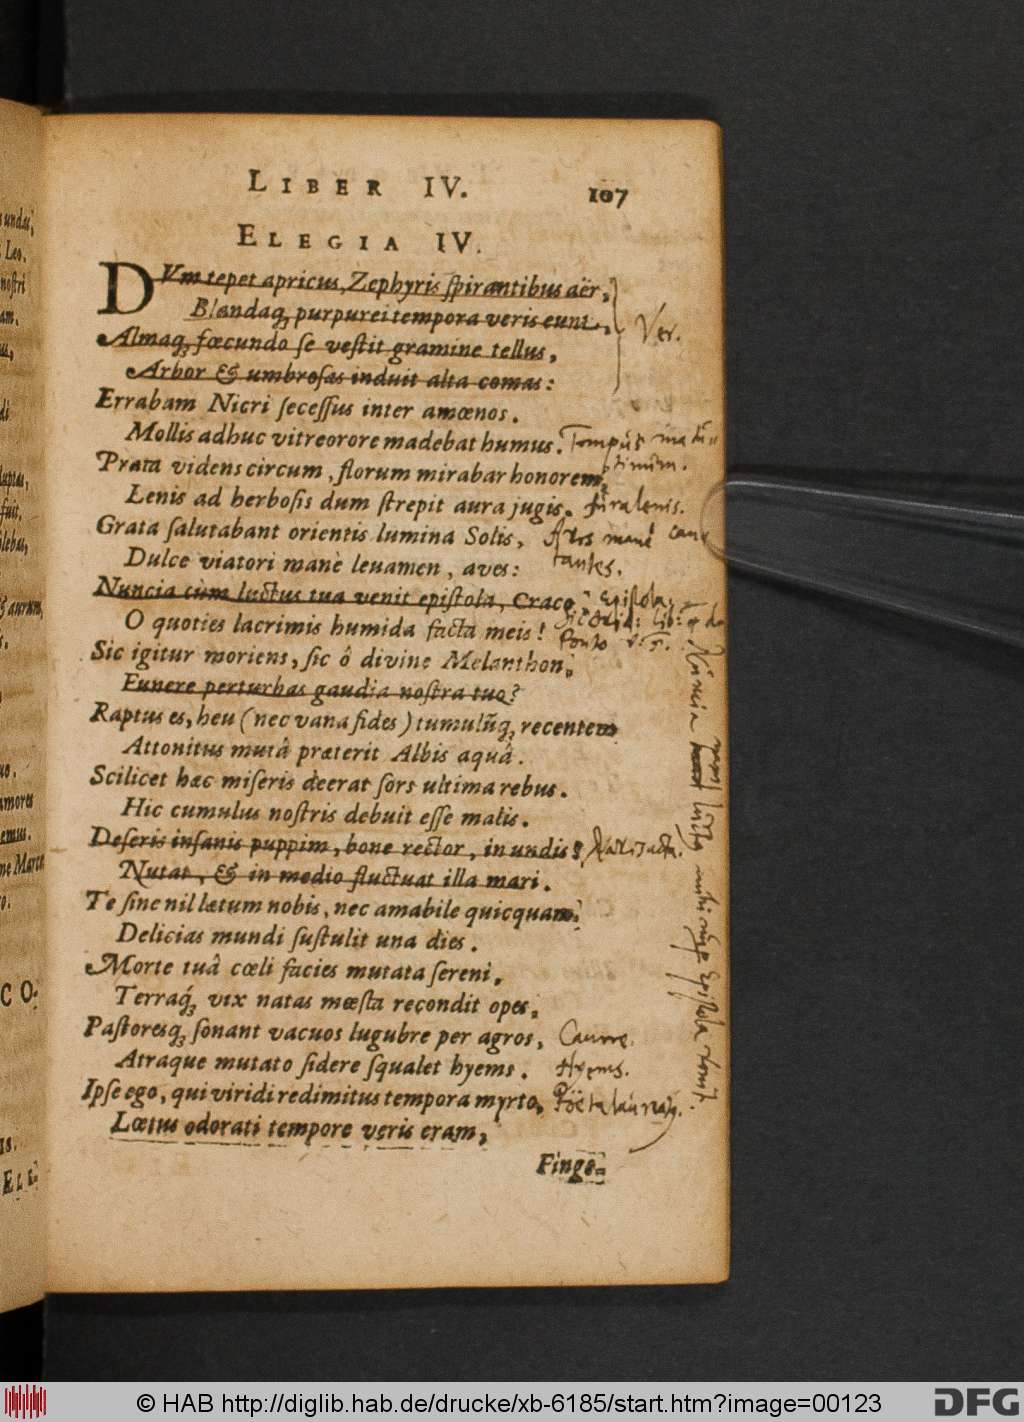 LIBER IV. 107
ELEGIA IV.
DVm tepet apricus, Zephyris spirantibus aër,
Blandaq; purpurei tempora veris eunt,
Ver.
Almaq; fœcundo se vestit gramine tellus,
Arbor & umbrosas induit alta comas:
Errabam Nicri secessus inter amœnos.
Mollis adhuc vitreo rore madebat humus.
Tempus matu-
tinum.
Prata videns circum, florum mirabar honorem,
Lenis ad herbosis dum strepit aura jugis.
Aura lenis.
Grata salutabant orientis lumina Solis,
Aves manè can-
tantes.
Dulce viatori manè levamen, aves:
Nuncia cùm luctus tua venit epistola, Craco,
Epistola,
O quoties lacrimis humida facta meis!
Sic Ovid: lib: 4 de
Ponto
Sic igitur moriens, sic ô divine Melanthon,
Funere perturbas gaudia nostra tuo?
Raptus es, heu (nec vana fides) tumulũq; recentem
Attonitus mutâ præterit Albis aquâ.
Scilicet hæc miseris deerat sors ultima rebus.
Hic cumulus nostris debuit esse malis.
Deseris insanis puppim, bone rector, in undis?
Navis jacta.
Nutat, & in medio fluctuat illa mari.
Te sine nil lætum nobis, nec amabile quicquam,
Delicias mundi sustulit una dies.
Morte tuâ cœli facies mutata sereni,
Terraq́; vix natas mœsta recondit opes,
Pastoresq; sonant vacuos lugubre per agros,
Atraque mutato sidere squalet hyems.
Hyems.
Ipse ego, qui viridi redimitus tempora myrto,
Poëta laureatus.
Lætus odorati tempore veris eram,
Finge-
undas,
Leo.
nostri
am.
di
fuit,
aurum,
amores
emus.
ne Marco
CO-
ELE-
© HAB http://diglib.hab.de/drucke/xb-6185/start.htm?image=00123
DFG